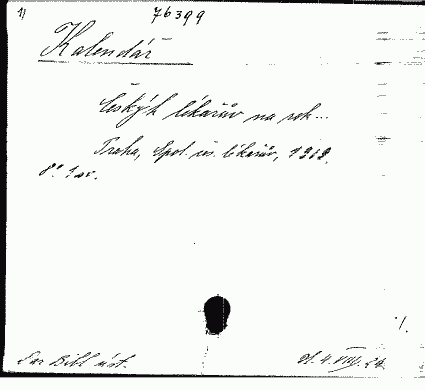 1)
76399
Kalendář
Českých lékařův na rok...
Praha, Spol. čes. lékařův, 1912.
8°. 1 sv.
Dar Bibl. úst.
d. 4. VIII. 24.